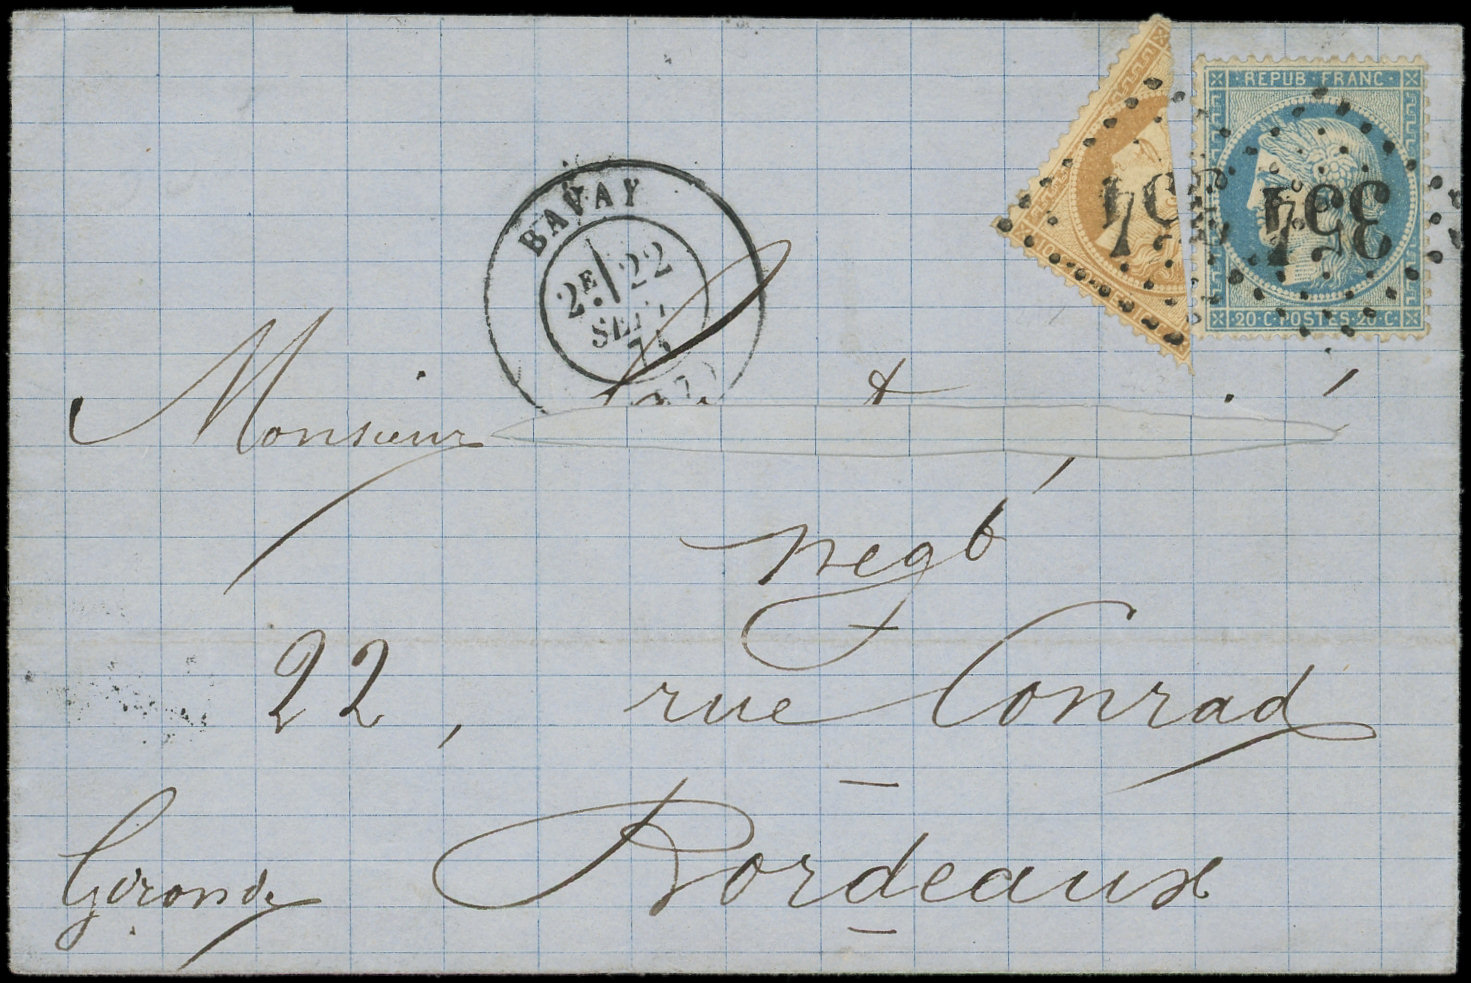 REPUB·FRANC
20·C·POSTES·20·C
BAVAY
2E 22
SEPT
71
Monsieur
negt
22, rue Conrad
Bordeaux
Gironde